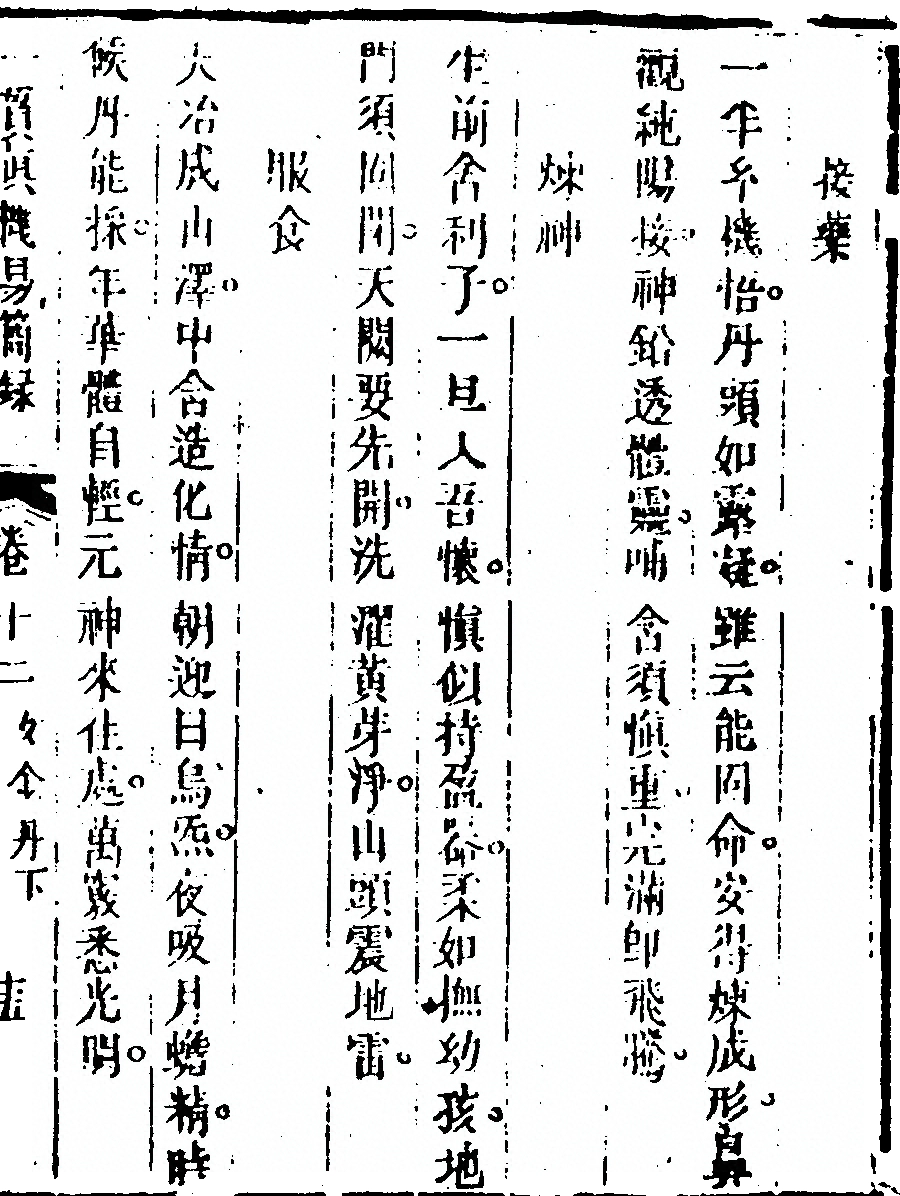 接藥
一半玄機悟丹頭如露凝雖云能固命安得煉成形鼻
觀純陽接神鉛透體靈哺含須慎重完滿卽飛騰
煉神
生前舍利子一旦入吾懷慎似持盈器柔如撫幼孩地
門須固閉天闕要先開洗濯黄芽淨山頭震地雷
服食
大冶成山澤中含造化情朝迎日烏炁夜吸月蟾精時
候丹能採年華體自輕元神來住處萬竅悉光明
貫眞機易簡録 卷十二 女金丹下